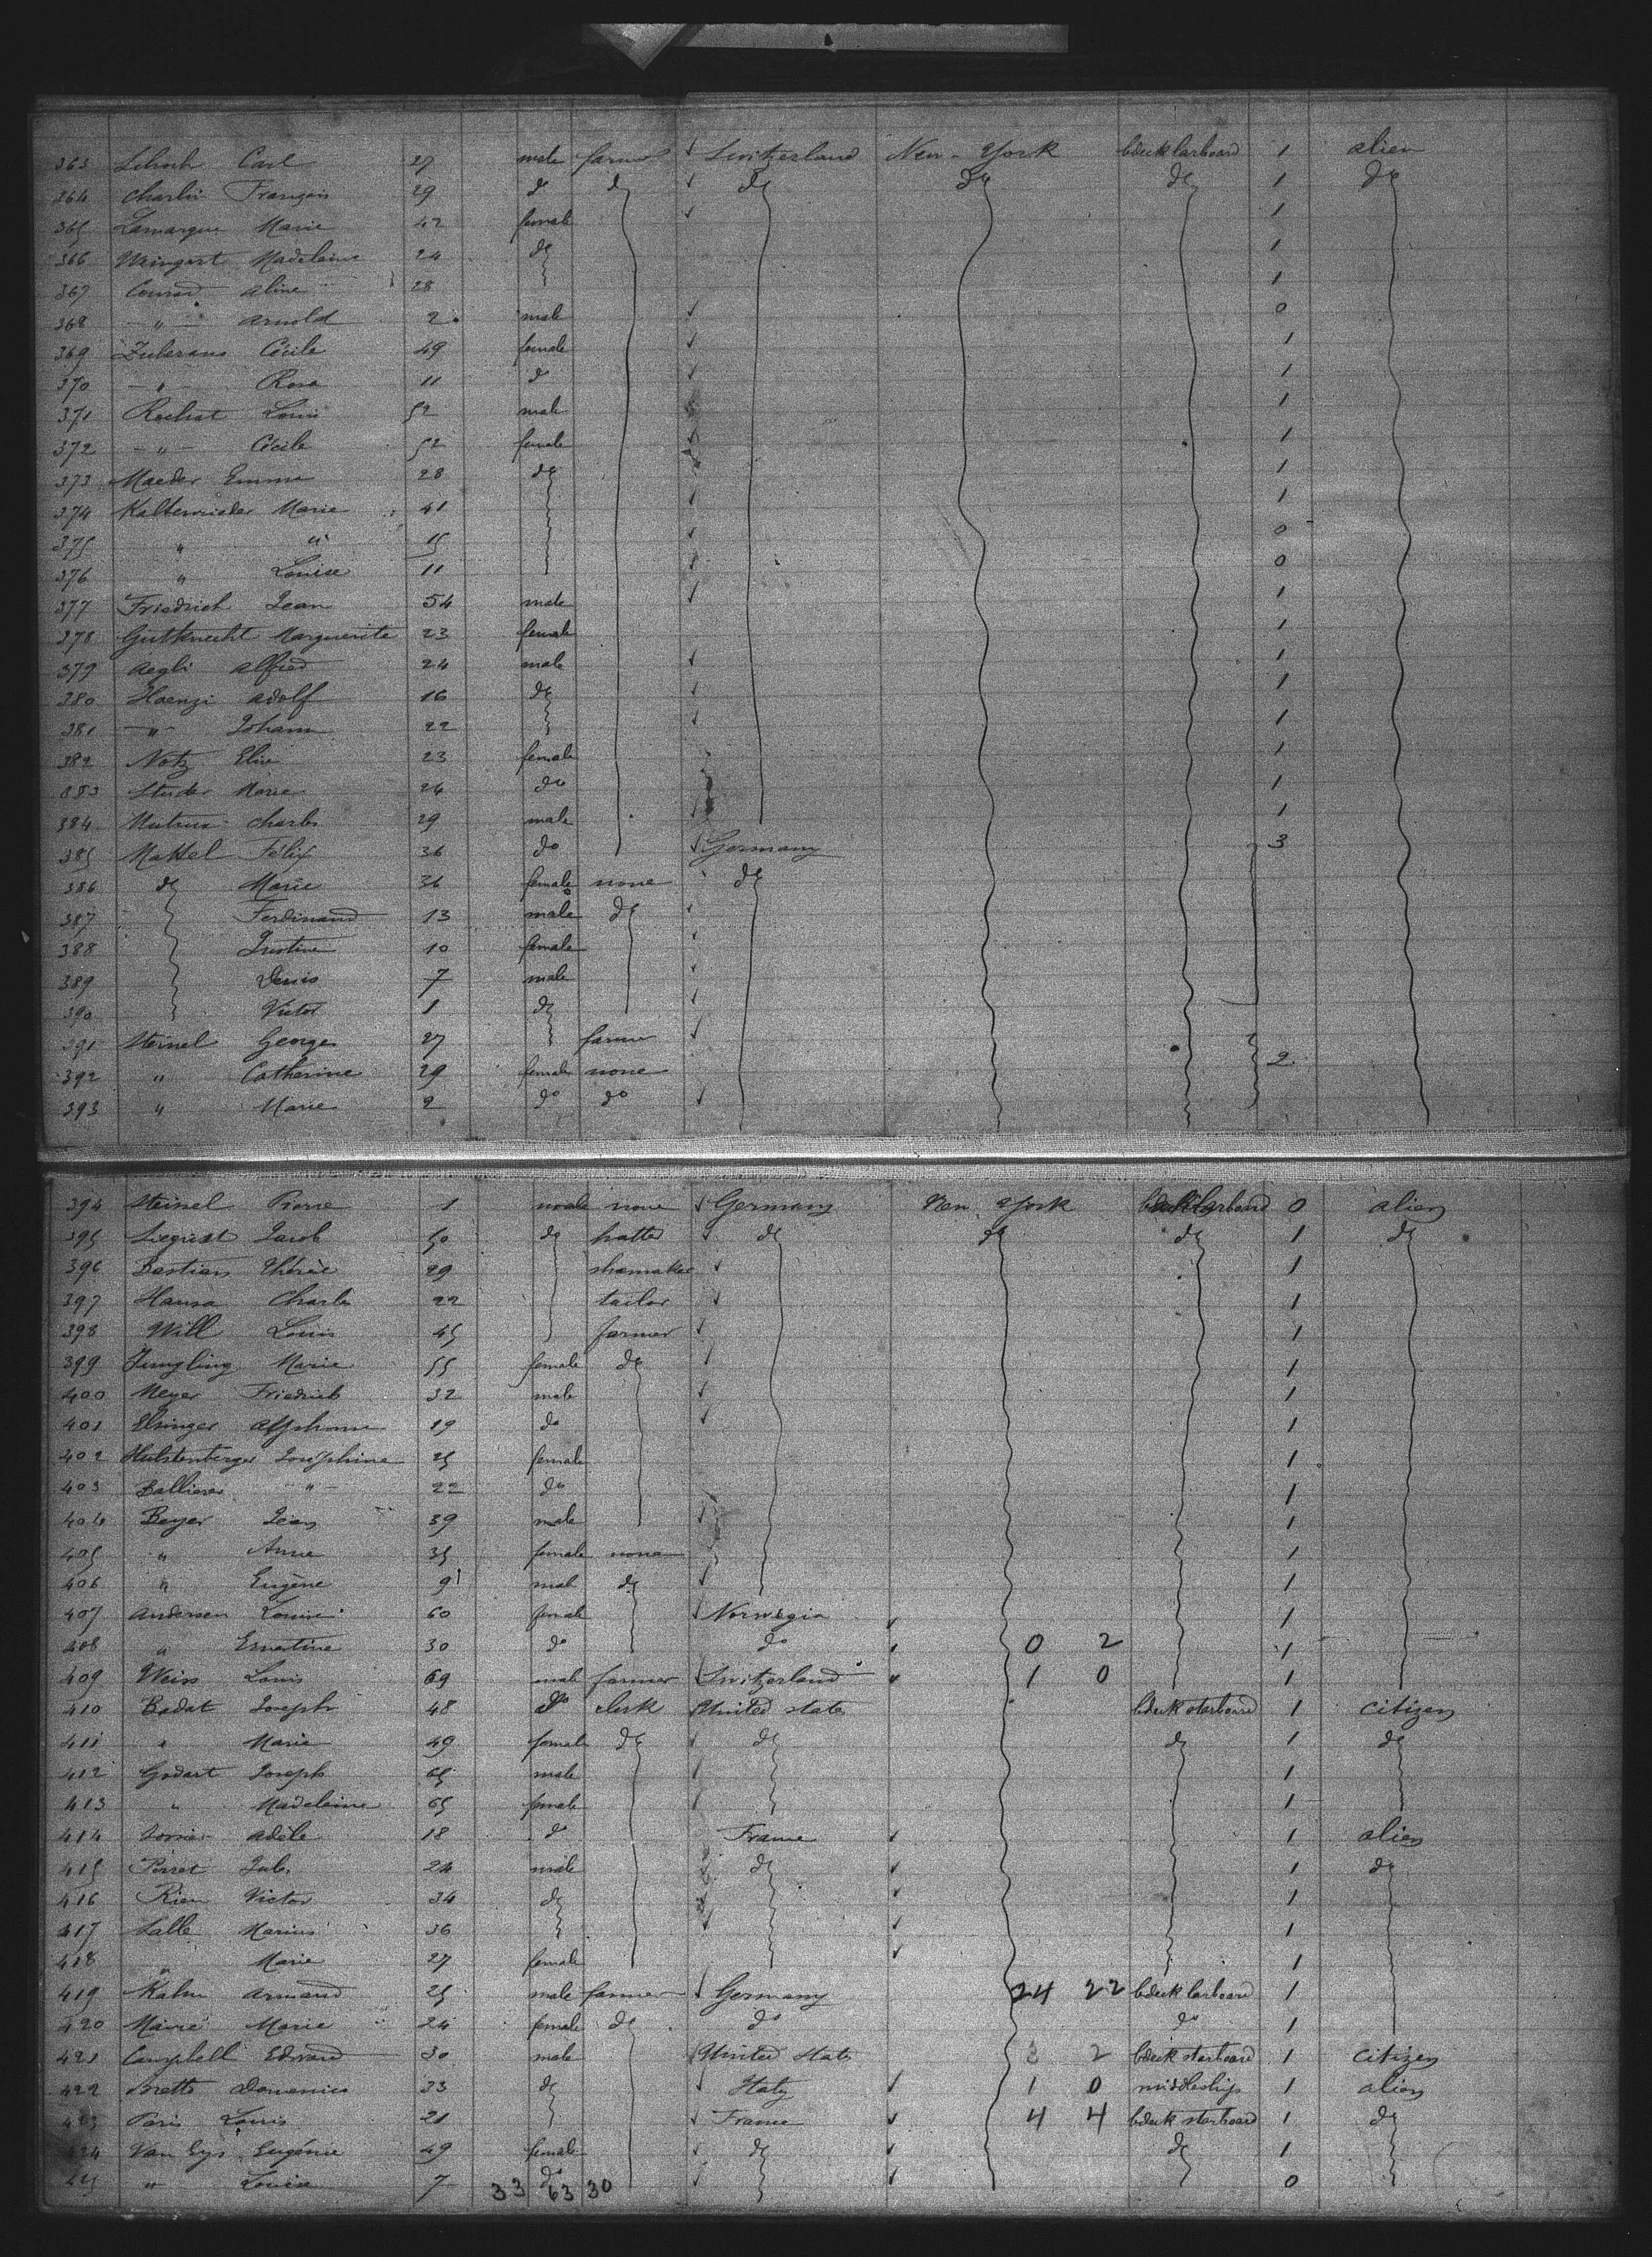 363 Carl 27 male farmer Switzerland New-York bdeck larboard 1 alien
364 Charlin François 29 do do do do do 1 do
365 Lamarque Marie 42 female 1
366 Weingart Madeleine 24 do 1
367 Conrad Aline 28 1
368 " Arnold 2 male 0
369 Cécile 49 female 1
370 " Rosa 11 do 1
371 Rochat Louis 52 male 1
372 " Cécile 52 female 1
373 Maeder Emma 28 do 1
374 Kaltenrieder Marie 41 1
375 " " 15 0
376 " Louise 11 0
377 Friedrich Jean 54 male 1
378 Gutknecht Marguerite 23 female 1
379 Aegli Alfred 24 male 1
380 Haenzi Adolf 16 do 1
381 " Johann 22 1
382 Notz Elise 23 female 1
383 Studer Marie 24 do 1
384 Charles 29 male 1
385 Mattel Félix 36 do Germany 3
386 do Marie 36 female none do
387 Ferdinand 13 male do
388 Justine 10 female
389 Denis 7 male
390 Victor 1 do
391 Steinel George 27 farmer
392 " Catherine 29 female none 2
393 " Marie 2 do do
394 Steinel Pierre 1 male none Germany New York bdeck larboard 0 alien
395 Siegrist Jacob 50 do hatter do do do 1 do
396 Bastian Thérèse 29 shomaker 1
397 Hausa Charles 22 tailor 1
398 Will Louis 45 farmer 1
399 Jungling Marie 55 female do 1
400 Meyer Friedrich 32 male 1
401 Elsinger Alphonse 19 do 1
402 Hulstenberger Josephine 25 female 1
403 Ballieres " 22 do 1
404 Beyer Jean 39 male 1
405 " Anne 35 female none 1
406 " Eugène 9 male do 1
407 Andersen Louise 60 female Norwegia 1
408 " Ernestine 30 do do 0 2 1
409 Weiss Louis 69 male farmer Switzerland 1 0 1
410 Badat Joseph 48 do clerk United state bdeck starboard 1 citizen
411 " Marie 49 female do do do 1 do
412 Godart Joseph 65 male 1
413 " Madeleine 65 female 1
414 Adèle 18 do France 1 alien
415 Perret Jules 24 male do 1 do
416 Rieu Victor 34 do 1
417 Lalle Marius 36 1
418 " Marie 27 female 1
419 Kahn Armand 25 male farmer Germany 24 22 bdeck larboard 1
420 Maire Marie 24 female do do do 1
421 Campbell Edward 30 male United State 2 bdeck starboard 1 citizen
422 Bretto Domenico 33 do Italy 1 0 middleship 1 alien
423 Paris Louis 21 France 4 4 bdeck starboard 1 do
424 Van Eys Eugénie 49 female do do 1
425 " Louise 7 do 0
33 63 30